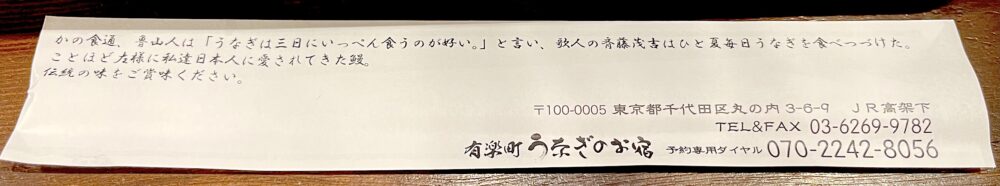 かの食通、魯山人は「うなぎは三日にいっぺん食うのが好い。」と言い、歌人の斉藤茂吉はひと夏毎日うなぎを食べつづけた。
ことほど左様に私達日本人に愛されてきた鰻。
伝統の味をご賞味ください。
〒100-0005 東京都千代田区丸の内 3-6-9 JR高架下
TEL&FAX 03-6269-9782
有楽町 うなぎのお宿 予約専用ダイヤル 070-2242-8056